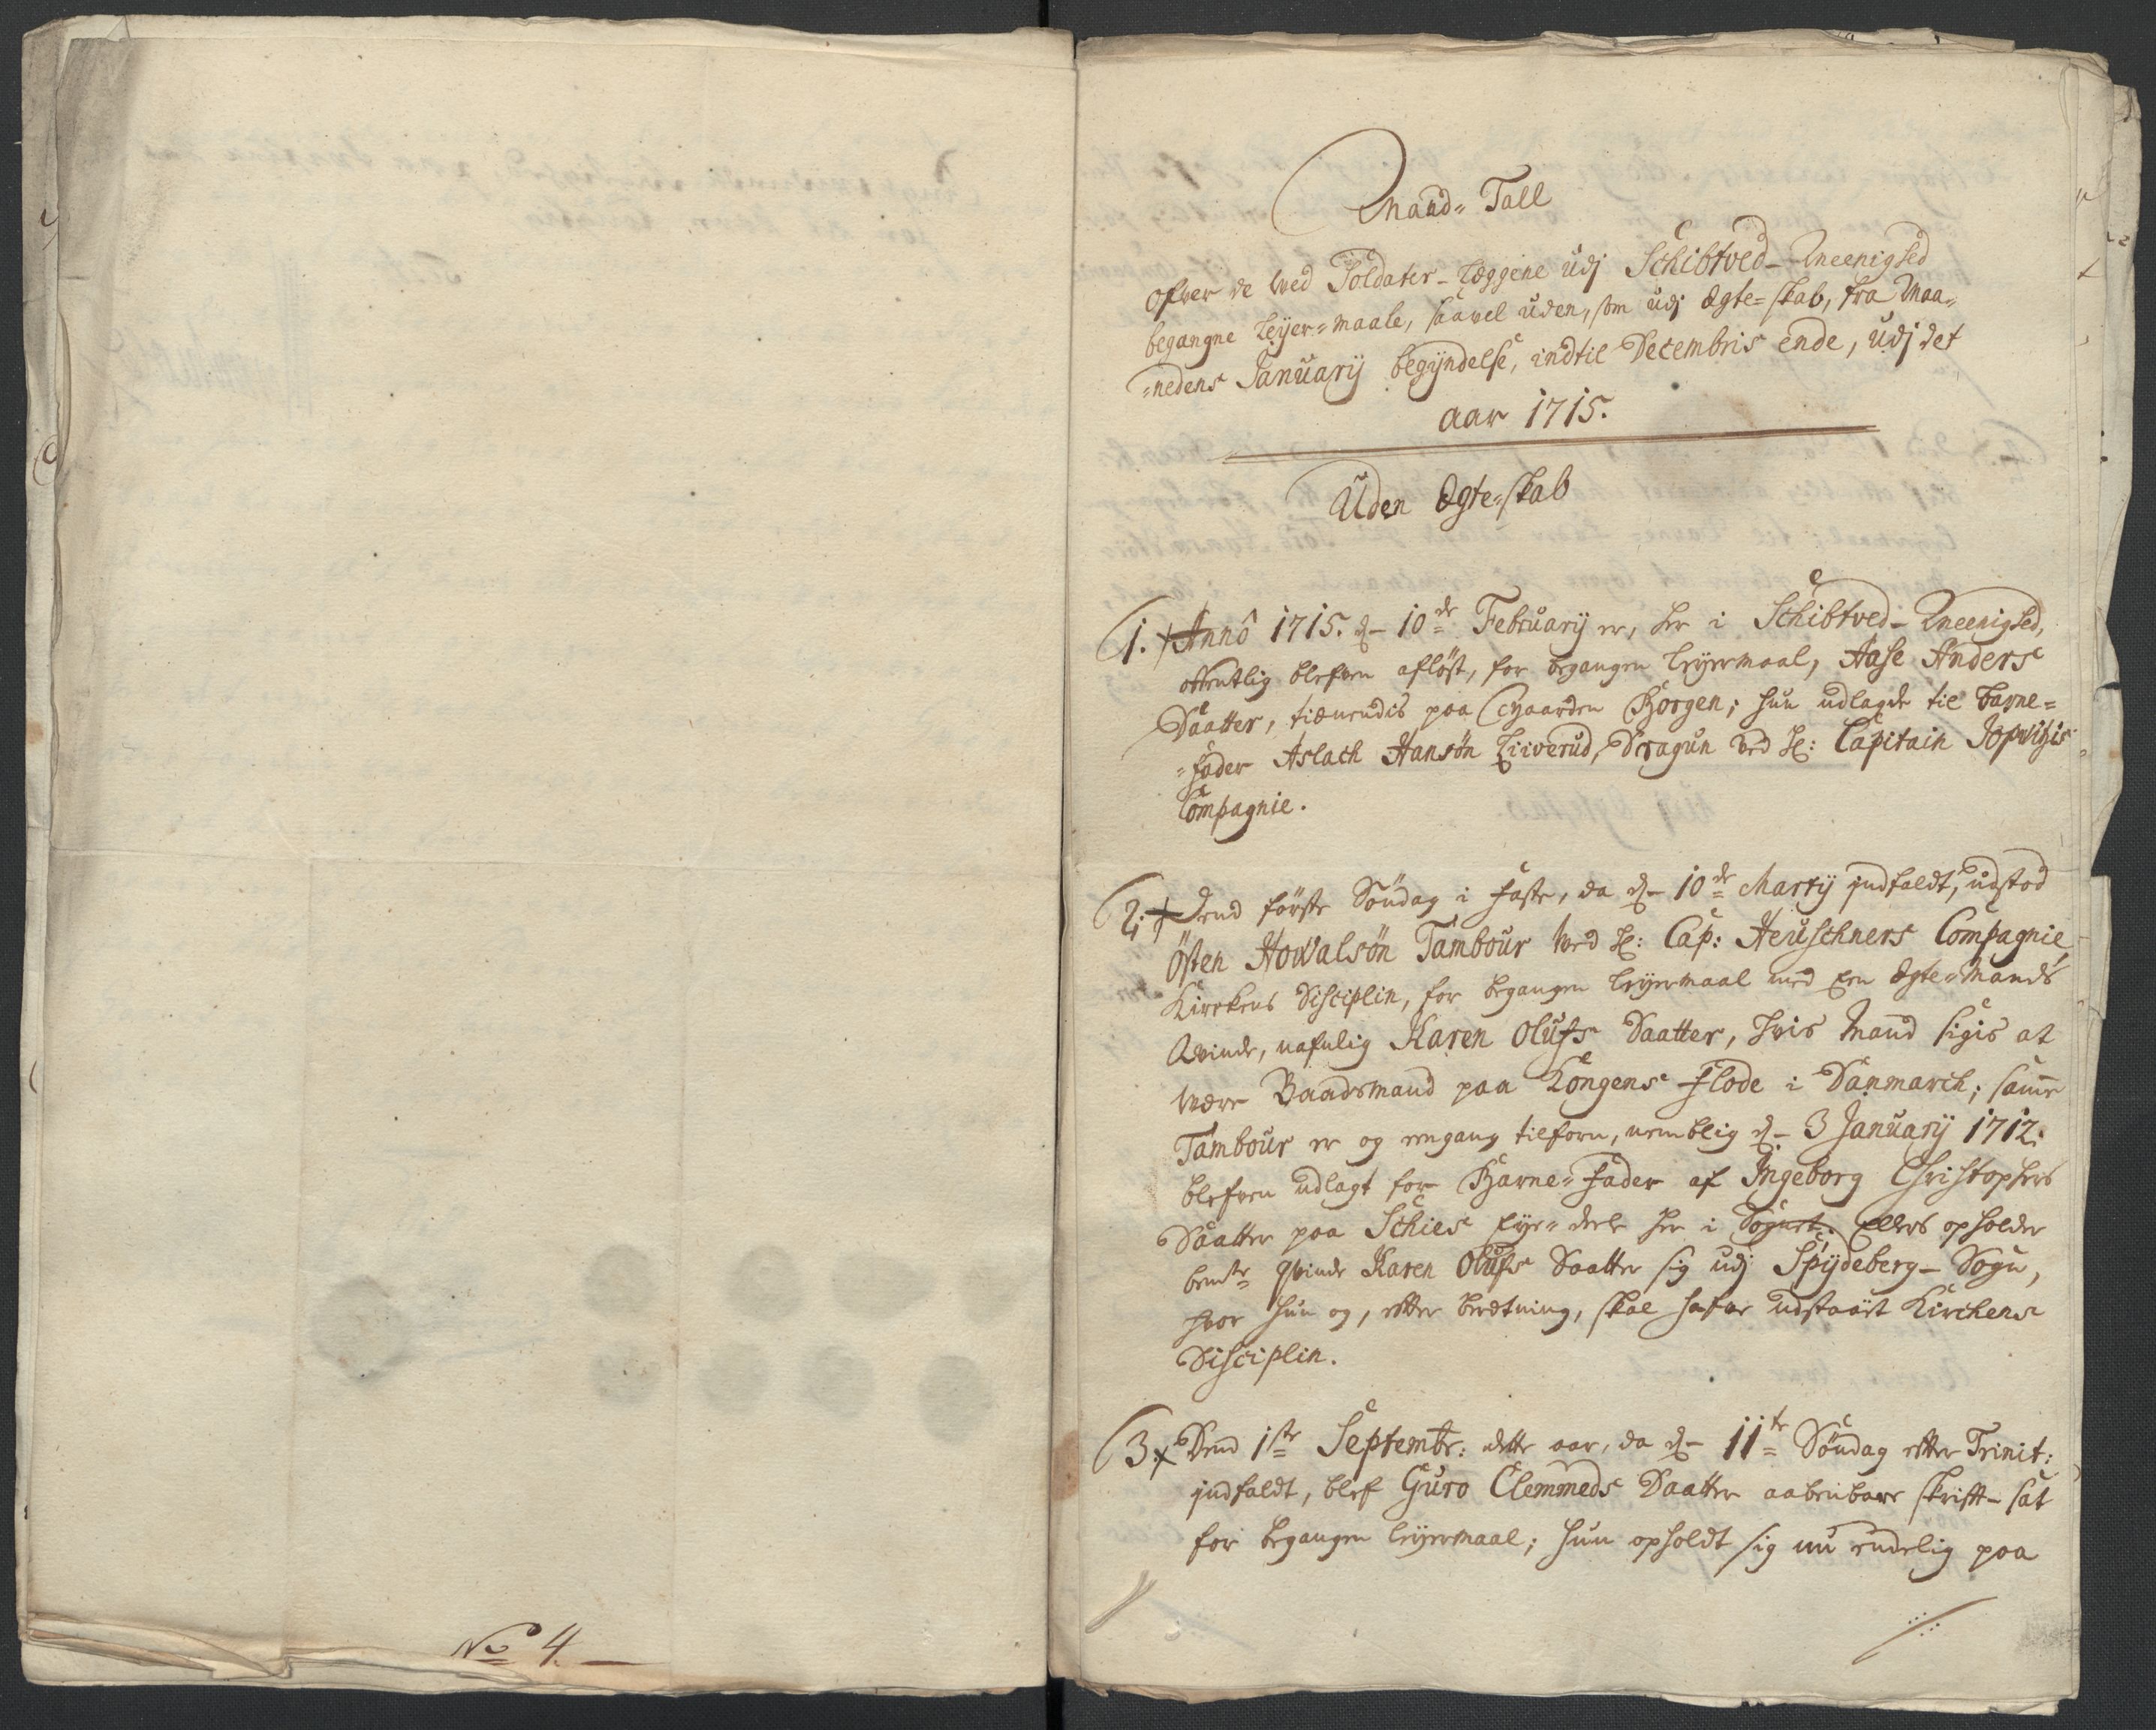 No 4.
Mand= Tall
ofver de ved Soldater-Læggene udj Schibtved-Meenighed
begangne Leyer=maale, saavel uden, som udj Ægte=skab, fra Maa=
=nedens Januarij begyndelse, indtil Decembris ende, udj det
aar 1715.
Uden Ægte=skab
1. Anno 1715. d- 10de Februarij er, her i Schibtved-Meenighed,
offentlig blefven afløst, for begangen leyermaal, Aase Anders
Daatter, tienendis paa Gaarden Borgen; hun udlagde til Barne=
=fader Aslach Hansøn Liiverud, Dragun ved Hr: Capitain
Compagnie.
2. Dend første Søndag i Faste, da d- 10de Martij indfaldt, udstod
Østen Howalsøn Tambour ved Hr: Cap: Heuschners Compagnie,
Kirckens Disciplin, for begangen leyermaal med een Ægte=Mands
Qvinde, nafnlig Karen Olufs Daatter, hvis Mand sigis at
være Baadsmand paa Kongens Flode i Danmarch; samme
Tambour er og engang tilforn, nemblig d- 3 Januarij 1712.
blefven udlagt for Barne=Fader af Ingeborg Christophers
Daatter paa Schies Eye=deele her i Sognet. Ellers opholder
bemte Qvinde Karen Olufs Daatter sig udj Spydeberg-Sogn,
hvor hun og, efter beretning, skal hafve udstaait Kirchens
Disciplin.
3. Dend 1ste Septembr: dette aar, da d- 11te Søndag efter Trinit:
indfaldt, blef Guro Clemmeds Daatter aabenbare skrift-sat
for begangen leyermaal; hun opholdt sig nu endelig paa